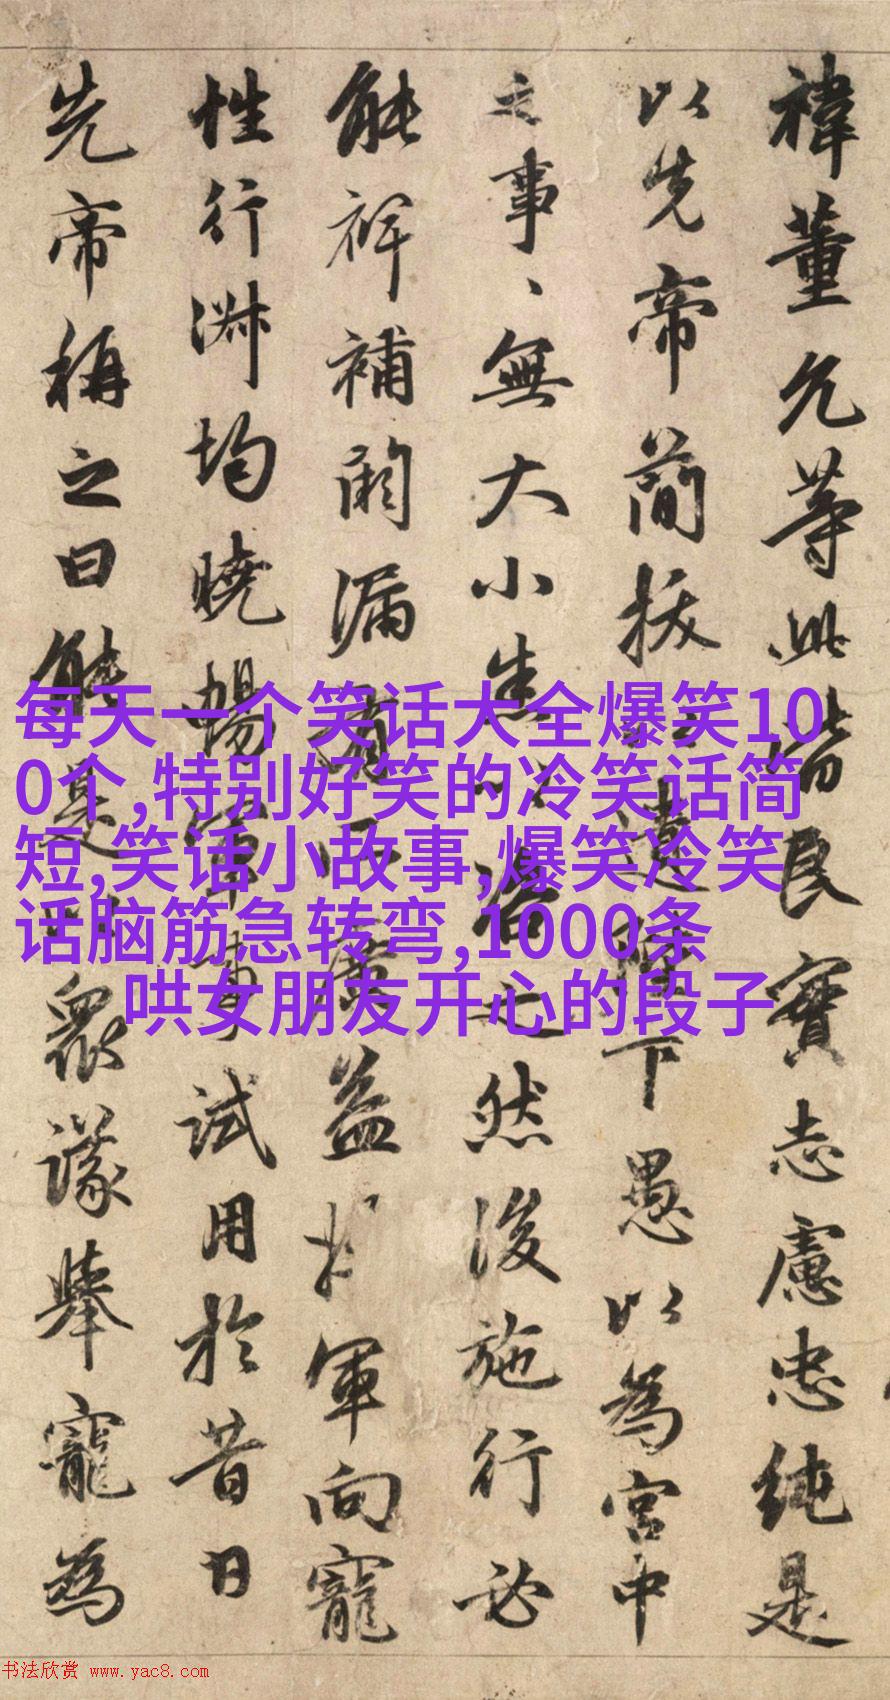 禕董允等此皆良實志慮忠純是
以先帝簡拔以遺陛下愚以為宮中
之事、無大小悉以咨之然後施行必
能裨補闕漏有所廣益將軍向寵
性行淋均曉暢軍事試用於昔日
先帝稱之曰能是以眾議舉寵為
每天一个笑话大全爆笑10
0个,特别好笑的冷笑话简
短,笑话小故事,爆笑冷笑
话脑筋急转弯,1000条
哄女朋友开心的段子
书法欣赏 www.yac8.com